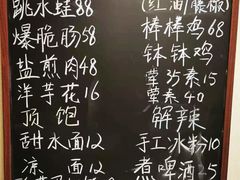 跳水蛙88
爆脆肠58
盐煎肉48
洋芋花16
顶饱
甜水面12
凉面12
(红油藤椒)
棒棒鸡68
钵钵鸡
荤35素15
荤素40
解辣
手工冰粉10
煮啤酒25